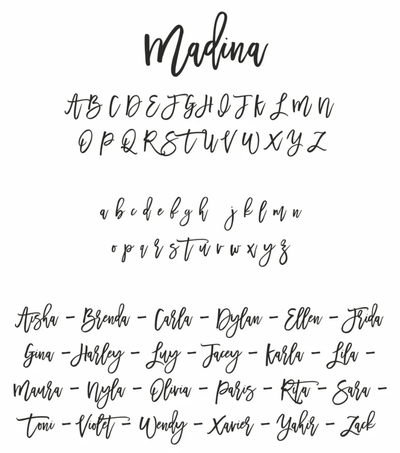 Madina
A B C D E F G H I J K L M N
O P Q R S T U V W X Y Z
a b c d e f g h j k l m n
o p q r s t u v w x y z
Aisha - Brenda - Carla - Dylan - Ellen - Frida
Gina - Harley - Ivy - Jacey - Karla - Lila -
Maura - Nyla - Olivia - Paris - Rita - Sara -
Toni - Violet - Wendy - Xavier - Yahir - Zack